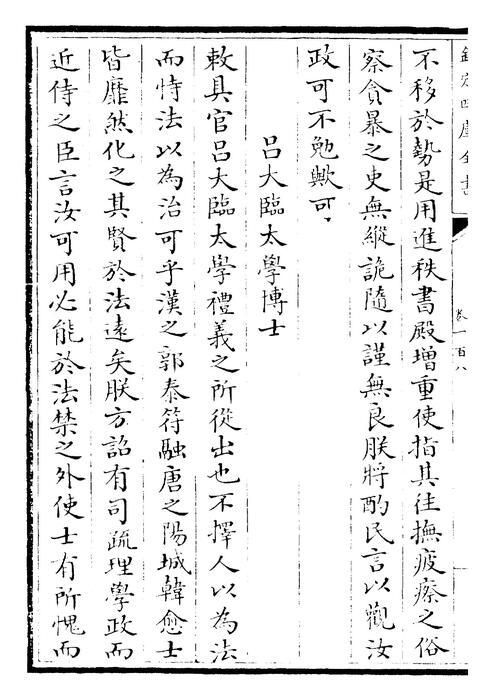 欽定四庫全書
卷一百八
不移於勢是用進秩書殿增重使指其往撫疲瘵之俗
察貪暴之吏無縱詭隨以謹無良朕將酌民言以觀汝
政可不勉歟可
吕大臨太學博士
敕具官吕大臨太學禮義之所從出也不擇人以為法
而恃法以為治可乎漢之郭泰符融唐之陽城韓愈士
皆靡然化之其賢於法遠矣朕方詔有司疏理學政而
近侍之臣言汝可用必能於法禁之外使士有所愧而